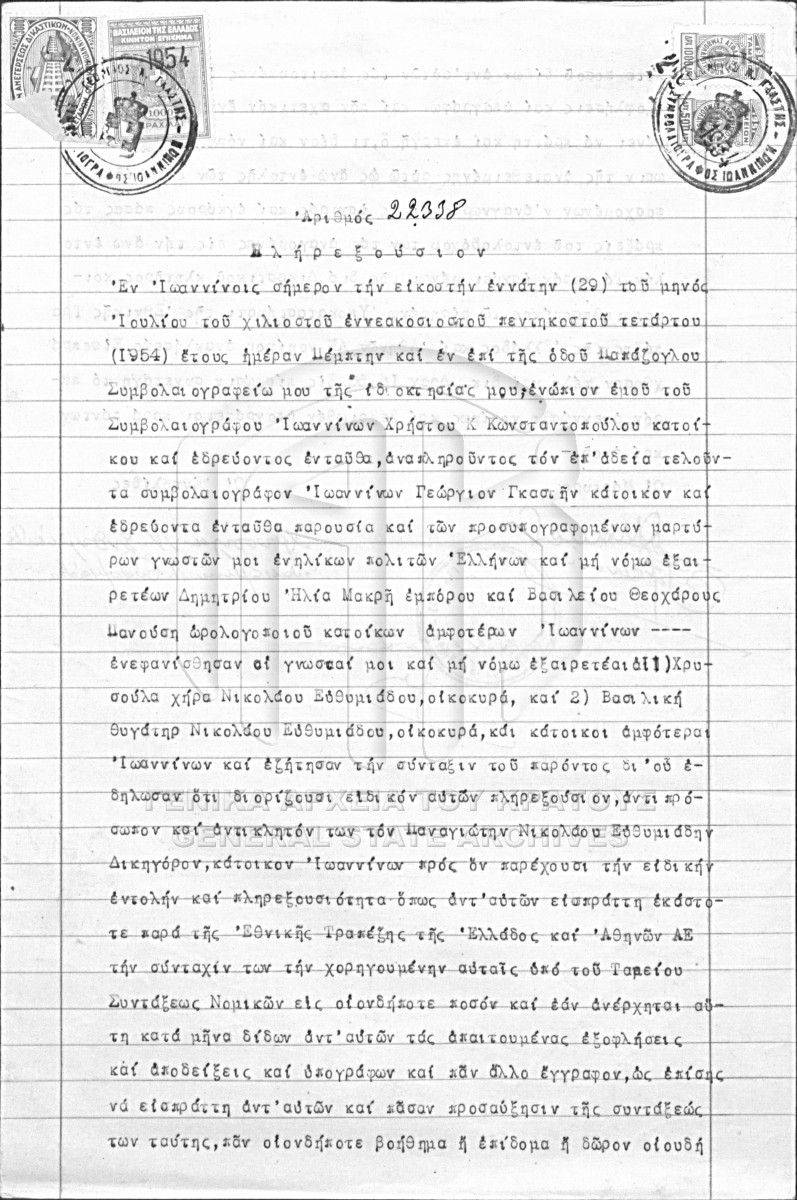 ΒΑΣΙΛΕΙΟΝ ΤΗΣ ΕΛΛΑΔΟΣ
ΚΙΝΗΤΟΝ ΕΠΙΣΗΜΑ
1954
100
ΣΥΜΒΟΛΑΙΟΓΡΑΦΟΣ ΙΩΑΝΝΙΝΩΝ
ΣΥΜΒΟΛΑΙΟΓΡΑΦΟΣ ΙΩΑΝΝΙΝΩΝ
Ἀριθμός 22338
Πληρεξούσιον
Ἐν Ἰωαννίνοις σήμερον τήν εἰκοστήν ἐννάτην (29) τοῦ μηνός
Ἰουλίου τοῦ χιλιοστοῦ ἐννεακοσιοστοῦ πεντηκοστοῦ τετάρτου
(1954) ἔτους ἡμέραν Πέμπτην καί ἐν ἐπί τῆς ὁδοῦ Παπάζογλου
Συμβολαιογραφείω μου τῆς ἰδιοκτησίας μου,ἐνώπιον ἐμοῦ τοῦ
Συμβολαιογράφου Ἰωαννίνων Χρήστου Κ Κωνσταντοπούλου κατοί-
κου καί ἑδρεύοντος ἐνταῦθα,ἀναπληροῦντος τόν ἐπ'ἀδεία τελοῦν-
τα συμβολαιογράφον Ἰωαννίνων Γεώργιον Γκαστῆν κάτοικον καί
ἑδρεύοντα ἐνταῦθα παρουσία καί τῶν προσυπογραφομένων μαρτύ-
ρων γνωστῶν μοι ἐνηλίκων πολιτῶν Ἑλλήνων καί μή νόμω ἐξαι-
ρετέων Δημητρίου Ἠλία Μακρῆ ἐμπόρου καί Βασιλείου Θεοχάρους
Πανούση ὡρολογοποιοῦ κατοίκων ἀμφοτέρων Ἰωαννίνων ----
ἐνεφανίσθησαν αἱ γνωσταί μοι καί μή νόμω ἐξαιρετέαι 1)Χρυ-
σούλα χήρα Νικολάου Εὐθυμιάδου,οἰκοκυρά, καί 2) Βασιλική
θυγάτηρ Νικολάου Εὐθυμιάδου,οἰκοκυρά,καί κάτοικοι ἀμφότεραι
Ἰωαννίνων καί ἐζήτησαν τήν σύνταξιν τοῦ παρόντος δι'οὗ ἐ-
δήλωσαν ὅτι διορίζουσι εἰδικόν αὑτῶν πληρεξούσιον,ἀντιπρό-
σωπον καί ἀντικλητόν των τόν Παναγιώτην Νικολάου Εὐθυμιάδην
Δικηγόρον,κάτοικον Ἰωαννίνων πρός ὅν παρέχουσι τήν εἰδικήν
ἐντολήν καί πληρεξουσιότητα ὅπως ἀντ'αὐτῶν εἰσπράττη ἑκάστο-
τε παρά τῆς Ἐθνικῆς Τραπέζης τῆς Ἑλλάδος καί Ἀθηνῶν ΑΕ
τήν σύνταξίν των τήν χορηγουμένην αὐταῖς ὑπό τοῦ Ταμείου
Συντάξεως Νομικῶν εἰς οἱονδήποτε ποσόν καί ἐάν ἀνέρχηται αὕ-
τη κατά μῆνα δίδων ἀντ'αὐτῶν τάς ἀπαιτουμένας ἐξοφλήσεις
καί ἀποδείξεις καί ὑπογράφων καί πᾶν ἄλλο ἔγγραφον,ὡς ἐπίσης
νά εἰσπράττη ἀντ'αὐτῶν καί πᾶσαν προσαύξησιν τῆς συντάξεώς
των ταύτης,πᾶν οἱονδήποτε βοήθημα ἤ ἐπίδομα ἤ δῶρον οἱουδή
ΓΕΝΙΚΑ ΑΡΧΕΙΑ ΤΟΥ ΚΡΑΤΟΥΣ
GENERAL STATE ARCHIVES